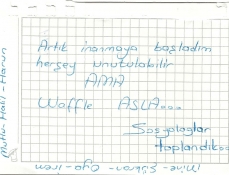 Artık inanmaya başladım
herşey unutulabilir
AMA
Waffle ASLA...
Sosyologlar
toplandık...
Mutlu-Halil-Harun
Mine-Şükran-Oya-İrem